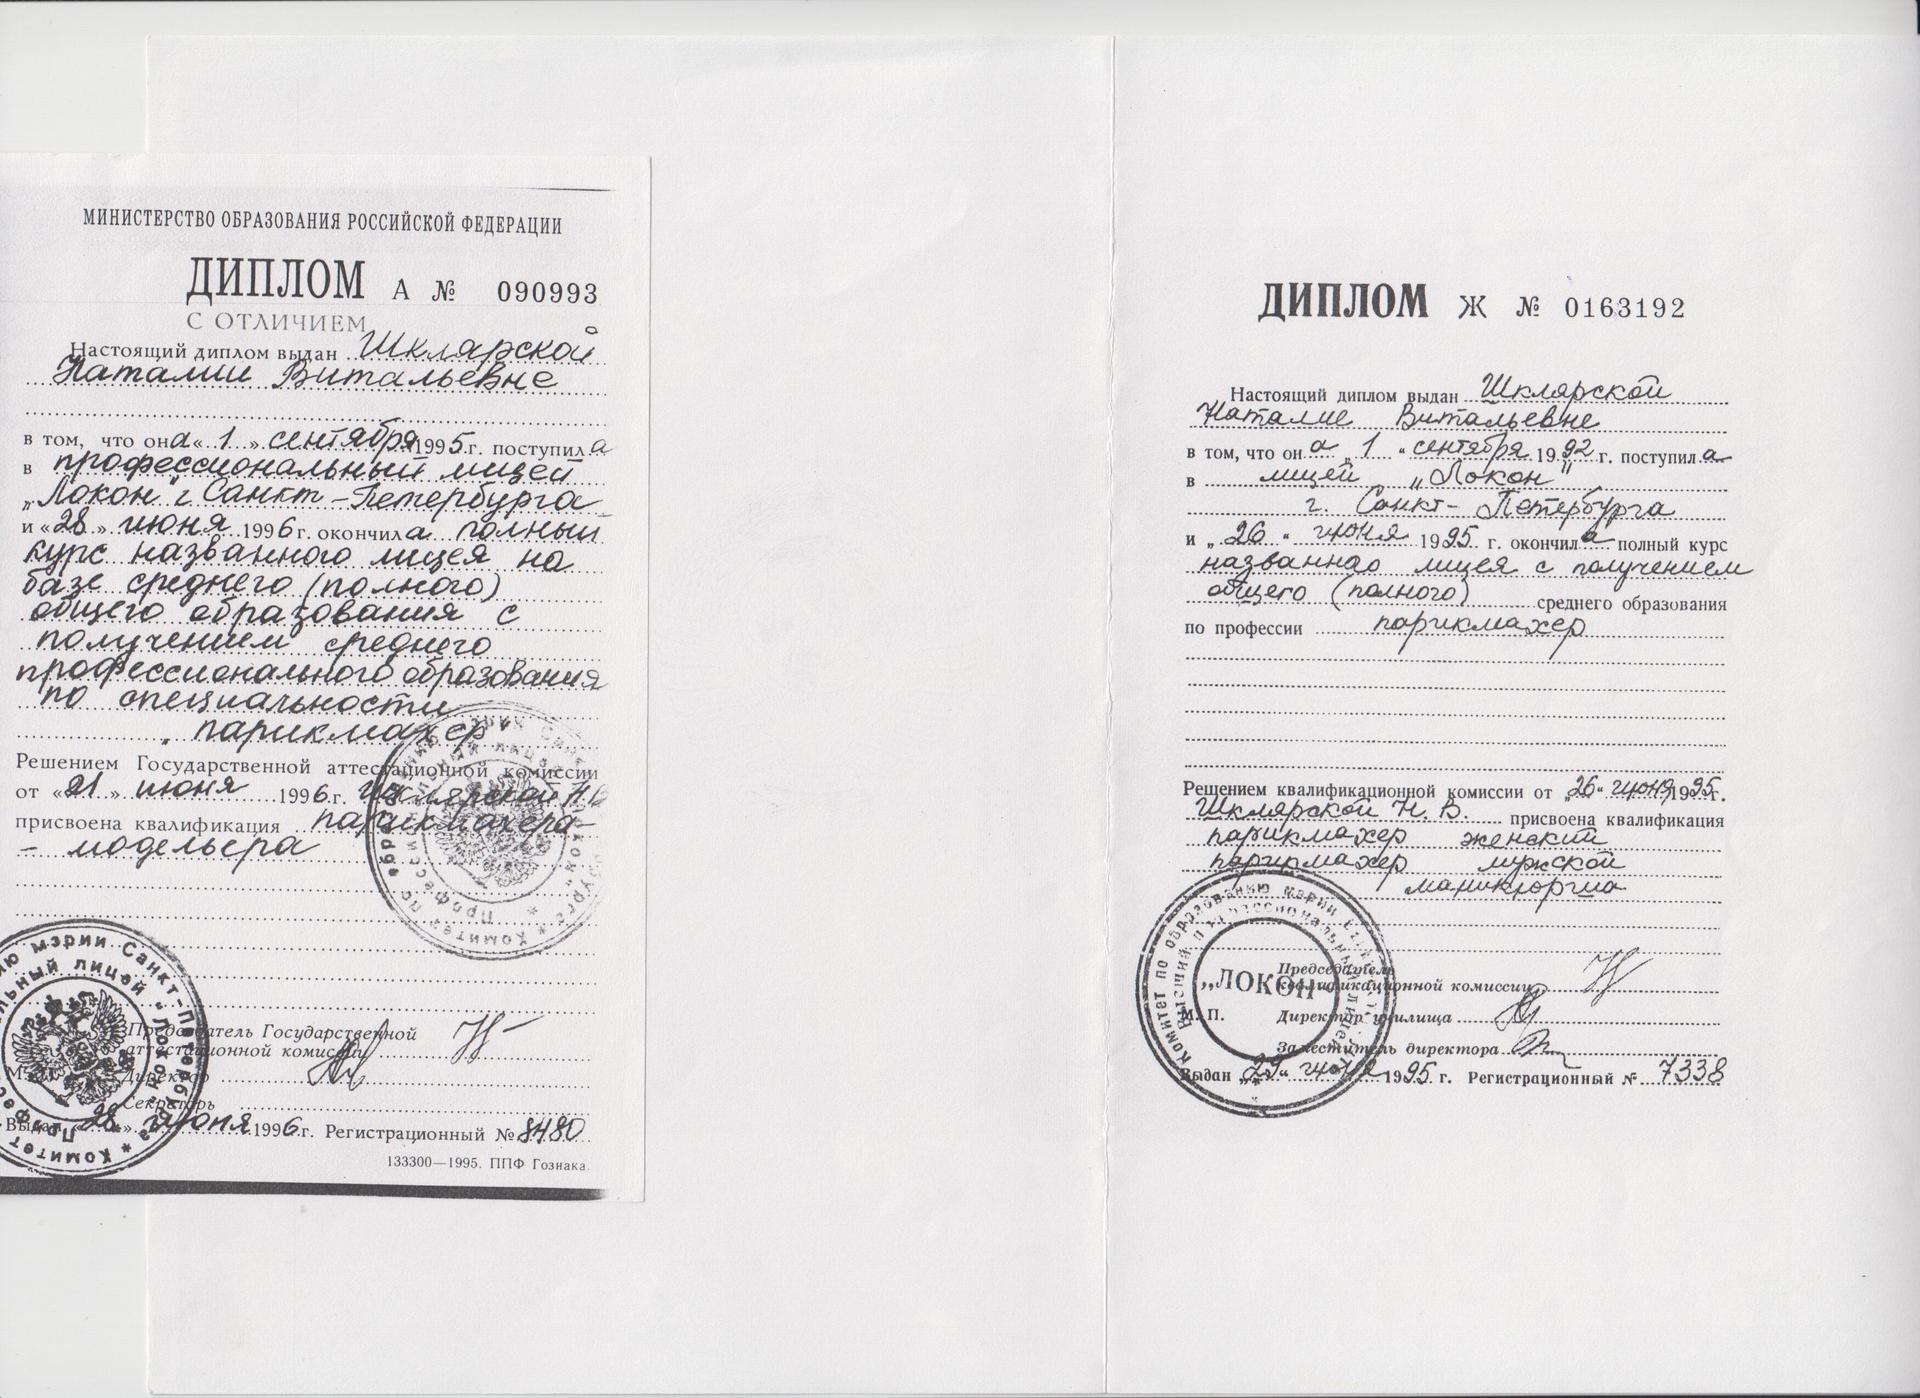 МИНИСТЕРСТВО ОБРАЗОВАНИЯ РОССИЙСКОЙ ФЕДЕРАЦИИ
ДИПЛОМ А № 090993
С ОТЛИЧИЕМ
Настоящий диплом выдан Шклярской
Наталии Витальевне
в том, что она «1» сентября 1995 г. поступила
в профессиональный лицей
„Локон" г Санкт-Петербурга
и «28» июня 1996 г. окончила полный
курс названного лицея на
базе среднего (полного)
общего образования с
получением среднего
профессионального образования
по специальности
„парикмахер"
Решением Государственной аттестационной комиссии
от «21» июня 1996 г. Шклярской Н В
присвоена квалификация парикмахера-
- модельера
Председатель Государственной
аттестационной комиссии
М. П. Директор
Секретарь
Выдан «28» июня 1996 г. Регистрационный № 8480
133300—1995. ППФ Гознака.
Комитет по образованию мэрии Санкт-Петербурга
Профессиональный лицей „Локон"
ДИПЛОМ Ж № 0163192
Настоящий диплом выдан Шклярской
Наталие Витальевне
в том, что она „1" сентября 1992 г. поступила
в лицей „Локон"
г. Санкт-Петербурга
и „26" июня 1995 г. окончила полный курс
названнао лицея с получением
общего (полного) среднего образования
по профессии парикмахер
Решением квалификационной комиссии от „26" июня 1995 г.
Шклярской Н. В. присвоена квалификация
парикмахер женский
парикмахер мужской
маникюрша
Председатель
квалификационной комиссии
М. П. Директор училища
Заместитель директора
Выдан „29" июня 1995 г. Регистрационный № 7338
Комитет по образованию мэрии
Высший профессиональный лицей
„ЛОКОН"